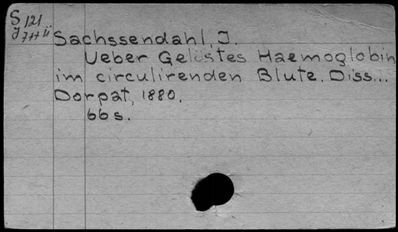 S 121
Sachssendahl, J.
Ueber Gelöstes Haemoglobin
im circulirenden Blute. Diss...
Dorpat, 1880.
66 s.